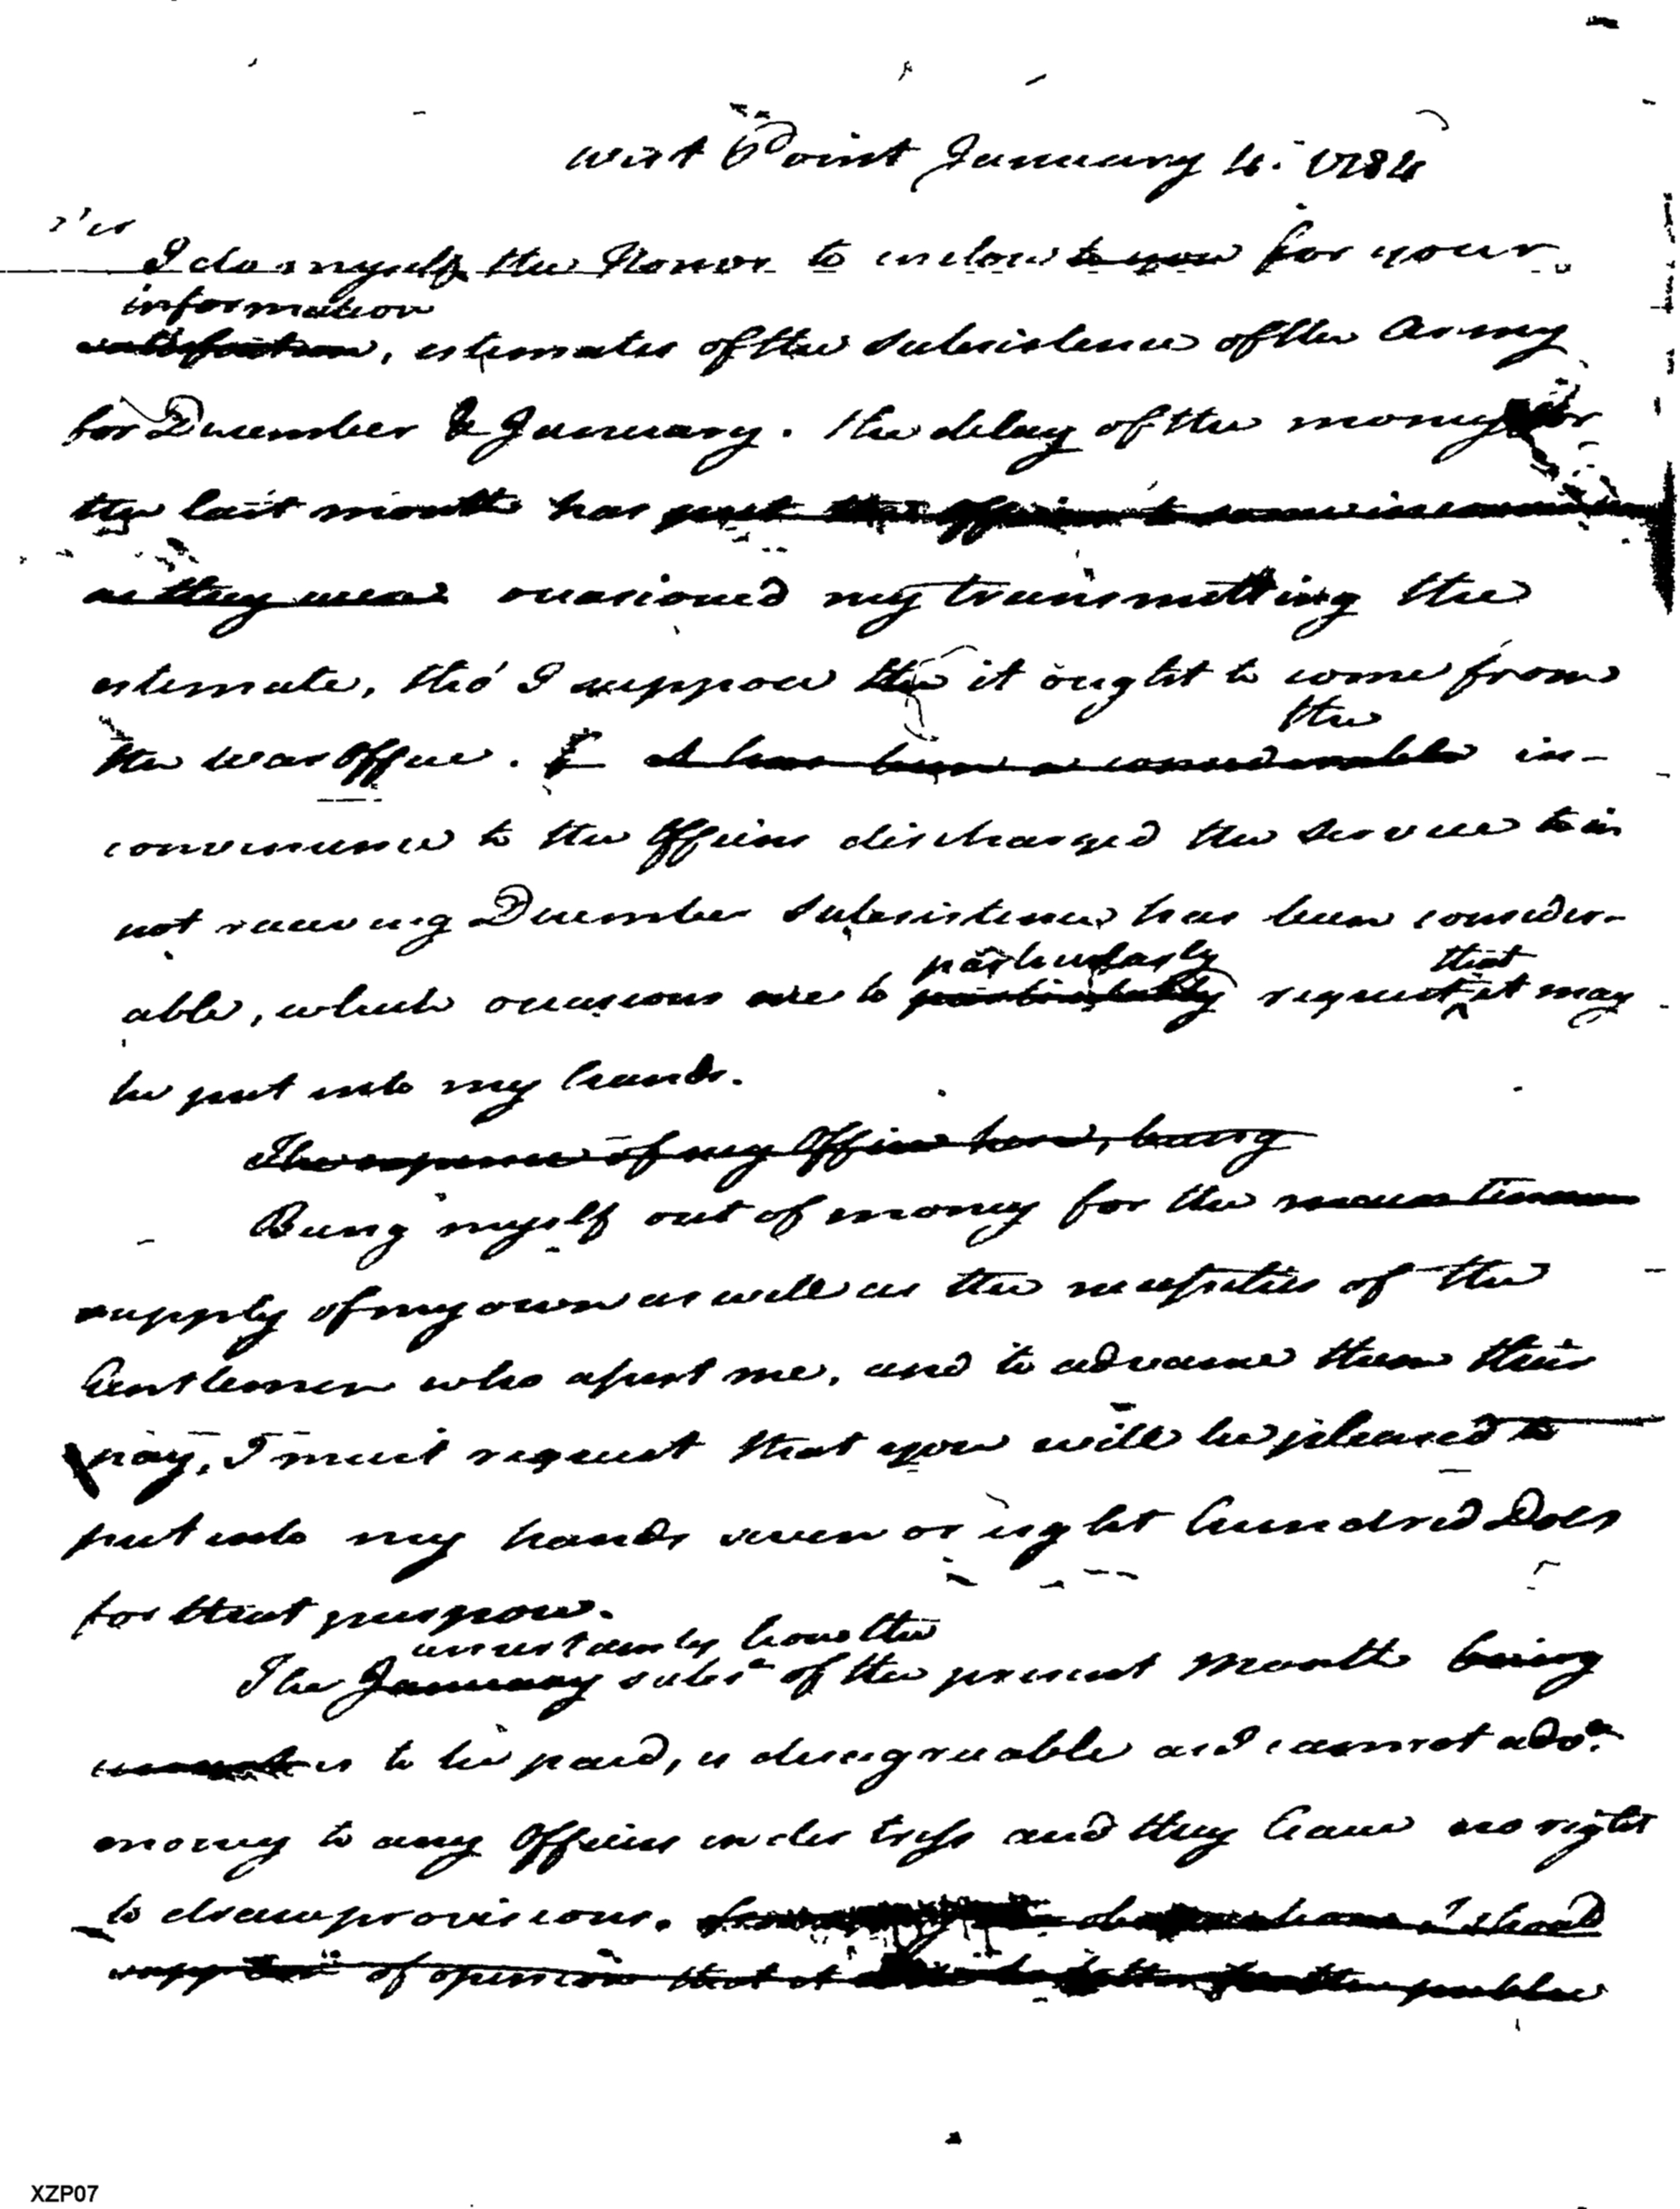 West Point January 4. 1784
Sir
I do myself the Honor to inclose to you for your
information
satisfaction, estimates of the subsistence of the Army
for December & January. the delay of the money for
the last month has put the officers to some
as they were occasioned my transmitting the
estimate, tho' I suppose it ought to come from
the
the War Office. It has been a considerable in-
convenience to the Officers discharged the service in
not receiving December subsistence has been consider-
particularly that
able, which occasions me to particularly request it may
be put into my hands.
The expence of my Office here, being
Being myself out of money for the
supply of my own as well as the necessities of the
Gentlemen who assist me, and to advance them their
pay, I must request that you will be pleased to
put into my hands seven or eight hundred Dols
for that purpose.
uncertainty how the
The January subs. of the present month being
is to be paid, is disagreeable as I cannot adv.
money to any Officers in distress and they have no right
to draw provisions. I should
of opinion that it better for the public
XZP07